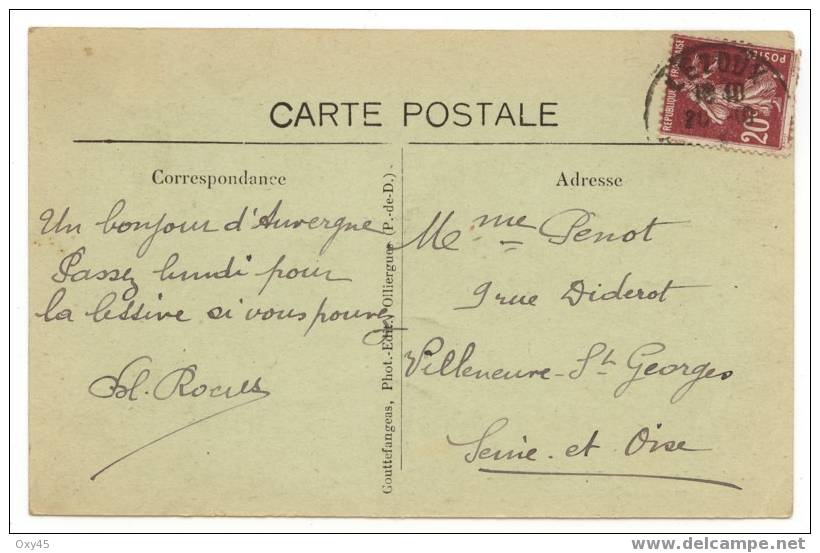 CARTE POSTALE
Correspondance
Un bonjour d'Auvergne
Passez lundi pour
la lessive si vous pouvez
Gouttefangeas, Phot.-Edit., Olliergues (P.-de-D.)
Adresse
Mme Penot
9 rue Diderot
Villeneuve-St Georges
Seine-et Oise
REPUBLIQUE FRANÇAISE
POSTES
20
Oxy45
www.delcampe.net